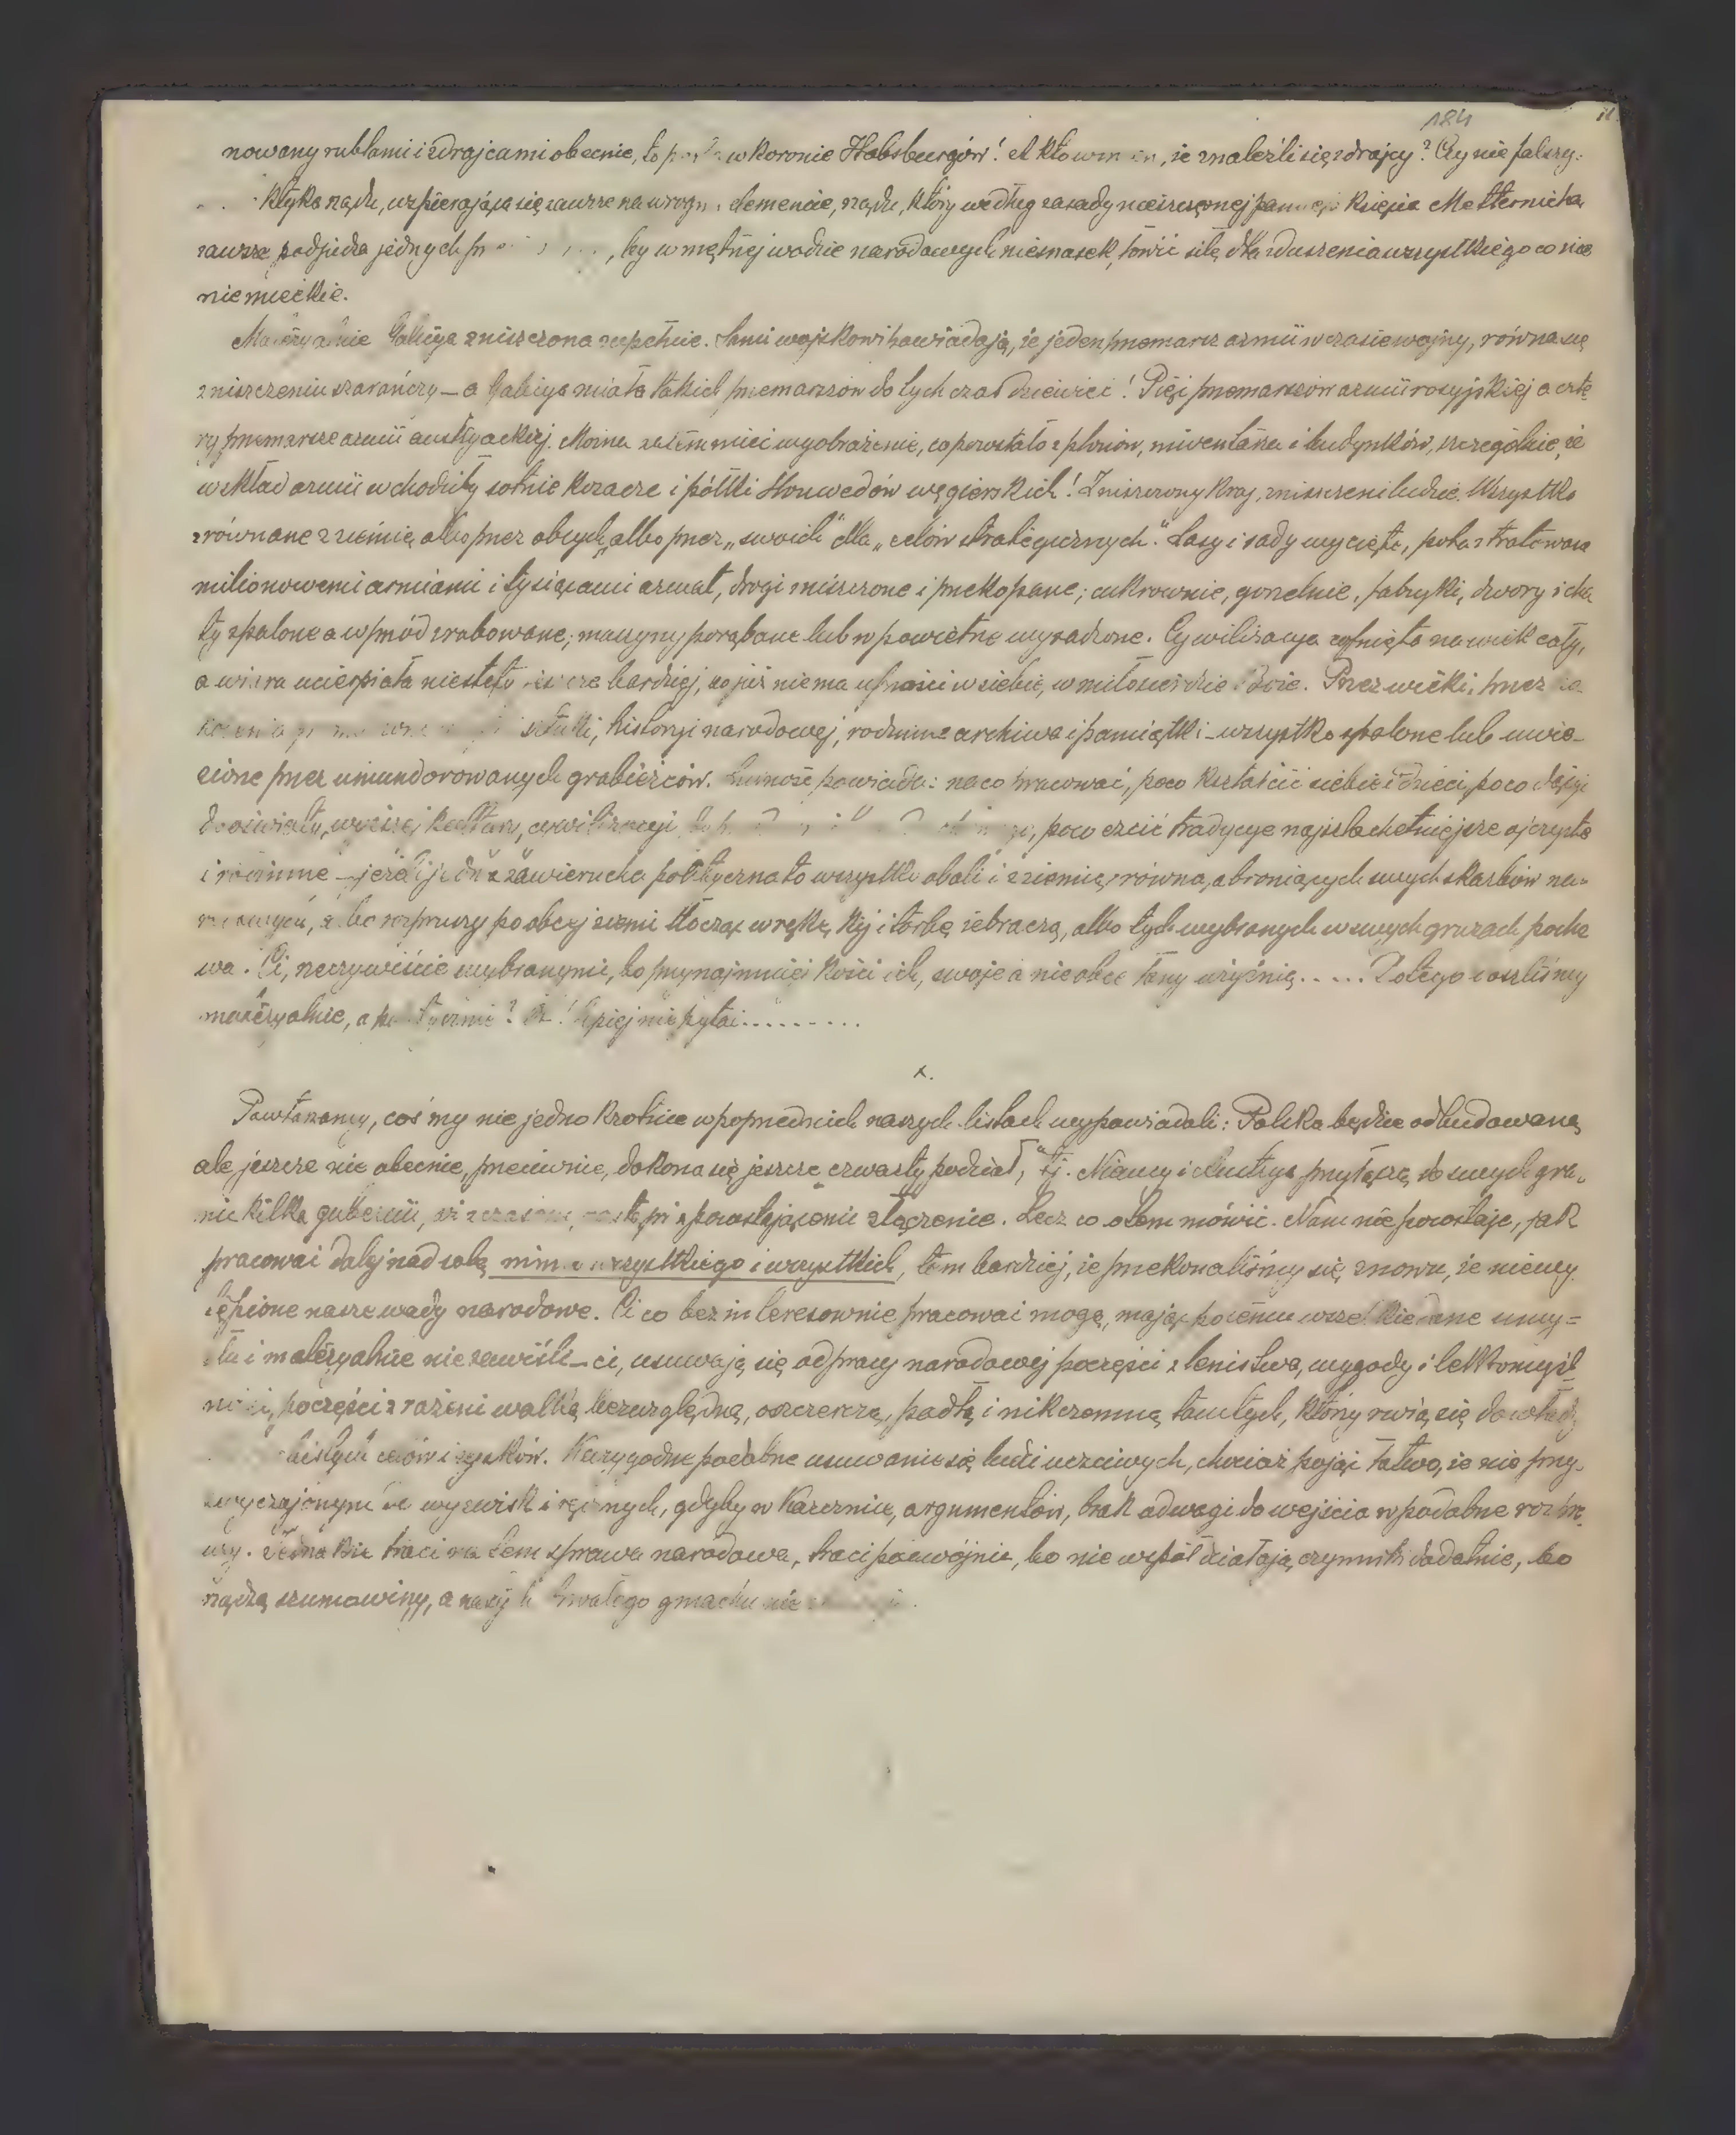 184
nowany rublami i zdrajcami obecnie, to w koronie Habsburgów! A kto, że znaleźli się zdrajcy? Czy nie fałszy-
ktyka rządu, wspierająca się zawsze na elemencie, rządu, który według zasady nieszczęsnej pamięci księcia Metternicha
zawsze podjudza jednych, by w mętnej wodzie narodowych niesnasek, łowić siłę dla zduszenia wszystkiego co nie
niemieckie.
Materyalnie Galicya zniszczona zupełnie. Sami wojskowi powiadają, że jeden przemarsz armii w czasie wojny, równa się
zniszczeniu szarańczy — a Galicya miała takich przemarszów do tych czas dziewięć! Pięć przemarszów armii rosyjskiej a czte-
ry przemarsze armii austryackiej. Można zatem mieć wyobrażenie, co powstało z plonów, inwentarza i budynków, szczególnie, że
w skład armii wchodziły sotnie kozacze i półki Honwedów węgierskich! Zniszczony kraj, zniszczeni ludzie. Wszystko
zrównane z ziemią albo przez obcych, albo przez „swoich" dla „celów strategicznych". Lasy i sady wycięte, pola stratowane
milionowemi armiami i tysiącami armat, drogi zniszczone i przekopane; cukrownie, gorzelnie, fabryki, dwory i cha-
ty spalone a wprzód zrabowane; maszyny porąbane lub w powietrze wysadzone. Cywilizacya cofnięta na wiek cały,
a wiara ucierpiała niestety jeszcze bardziej, bo już nie ma ufności w siebie, w miłosierdzie Boże. Przez wieki, przez
sztuki, historyi narodowej, rodzinne archiwa i pamiątki – wszystko spalone lub uwie-
zione przez umundurowanych grabieżców. Ludność powiada: na co pracować, poco kształcić siebie i dzieci, poco dążyć
do oświaty, wyższej kultury, cywilizacyi, poco czcić tradycye najszlachetniejsze ojczyste
i rodzinne – jeżeli jedna zawierucha polityczna to wszystko obali i z ziemią zrówna, a broniących swych skarbów na-
rodowych, albo rozpruszy po obcej ziemi tłocząc w rękę kij i torbę żebraczą, albo tych wybranych w swych gruzach pocho
wa. Ci, rzeczywiście wybranymi, bo przynajmniej kości ich, swoje a nie obce łany użyźnią..... Do tego doszliśmy
materyalnie, a politycznie? Lepiej nie pytać..........
x.
Powtarzamy, cośmy nie jedno krotnie w poprzednich naszych listach wypowiadali: Polska będzie odbudowaną
ale jeszcze nie obecnie, przeciwnie, dokona się jeszcze czwarty podział, tj. Niemcy i Austrya przyłączą do swych gra-
nic kilka gubernii, z pozostającemi złączenie. Lecz co o tem mówić. Nam nie pozostaje, jak
pracować dalej nad sobą mimo wszystkiego i wszystkich, tem bardziej, że przekonaliśmy się znowu, że niewy
tępione nasze wady narodowe. Ci co bezinteresownie pracować mogą, mając potemu wszelkie dane umy-
słu i materyalnie niezawiśli – ci, usuwają się od pracy narodowej poczęści z lenistwa, wygody i lekkomyśl-
ności, poczęści zrażeni walką bezwzględną, oszczerczą, podłą i nikczemną tamtych, którzy rwią się do władzy
celów i zysków. Karygodne podobne usuwanie się ludzi uczciwych, chociaż pojąć łatwo, że nie przy-
zwyczajonym do wyzwisk i ręcznych, gdyby w kazernie, argumentów, brak odwagi do wejścia w podobne rozpra-
wy. Jednakże traci na tem sprawa narodowa, traci podwójnie, bo nie współdziałają czynniki dodatnie, bo
rządzą szumowiny, a trwałego gmachu nie